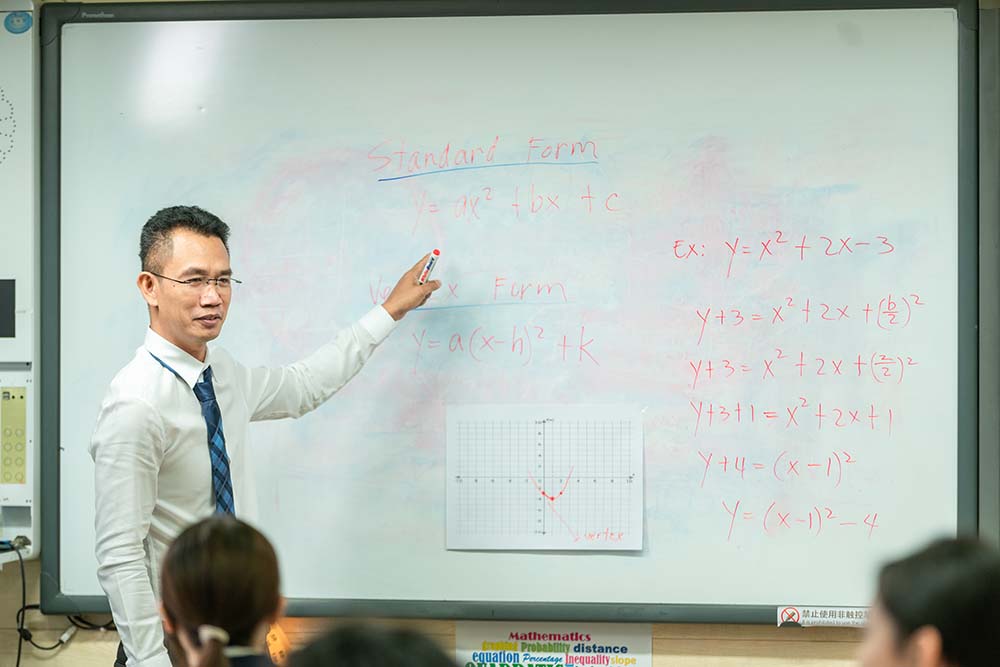 Promethean
Standard Form
y = ax² + bx + c
Form
y = a(x-h)² + k
Ex: y = x² + 2x - 3
y + 3 = x² + 2x + (b/2)²
y + 3 = x² + 2x + (2/2)²
y + 3 + 1 = x² + 2x + 1
y + 4 = (x - 1)²
y = (x - 1)² - 4
vertex
禁止使用非触控
Mathematics
Probability distance
equation Percentage Inequality slope